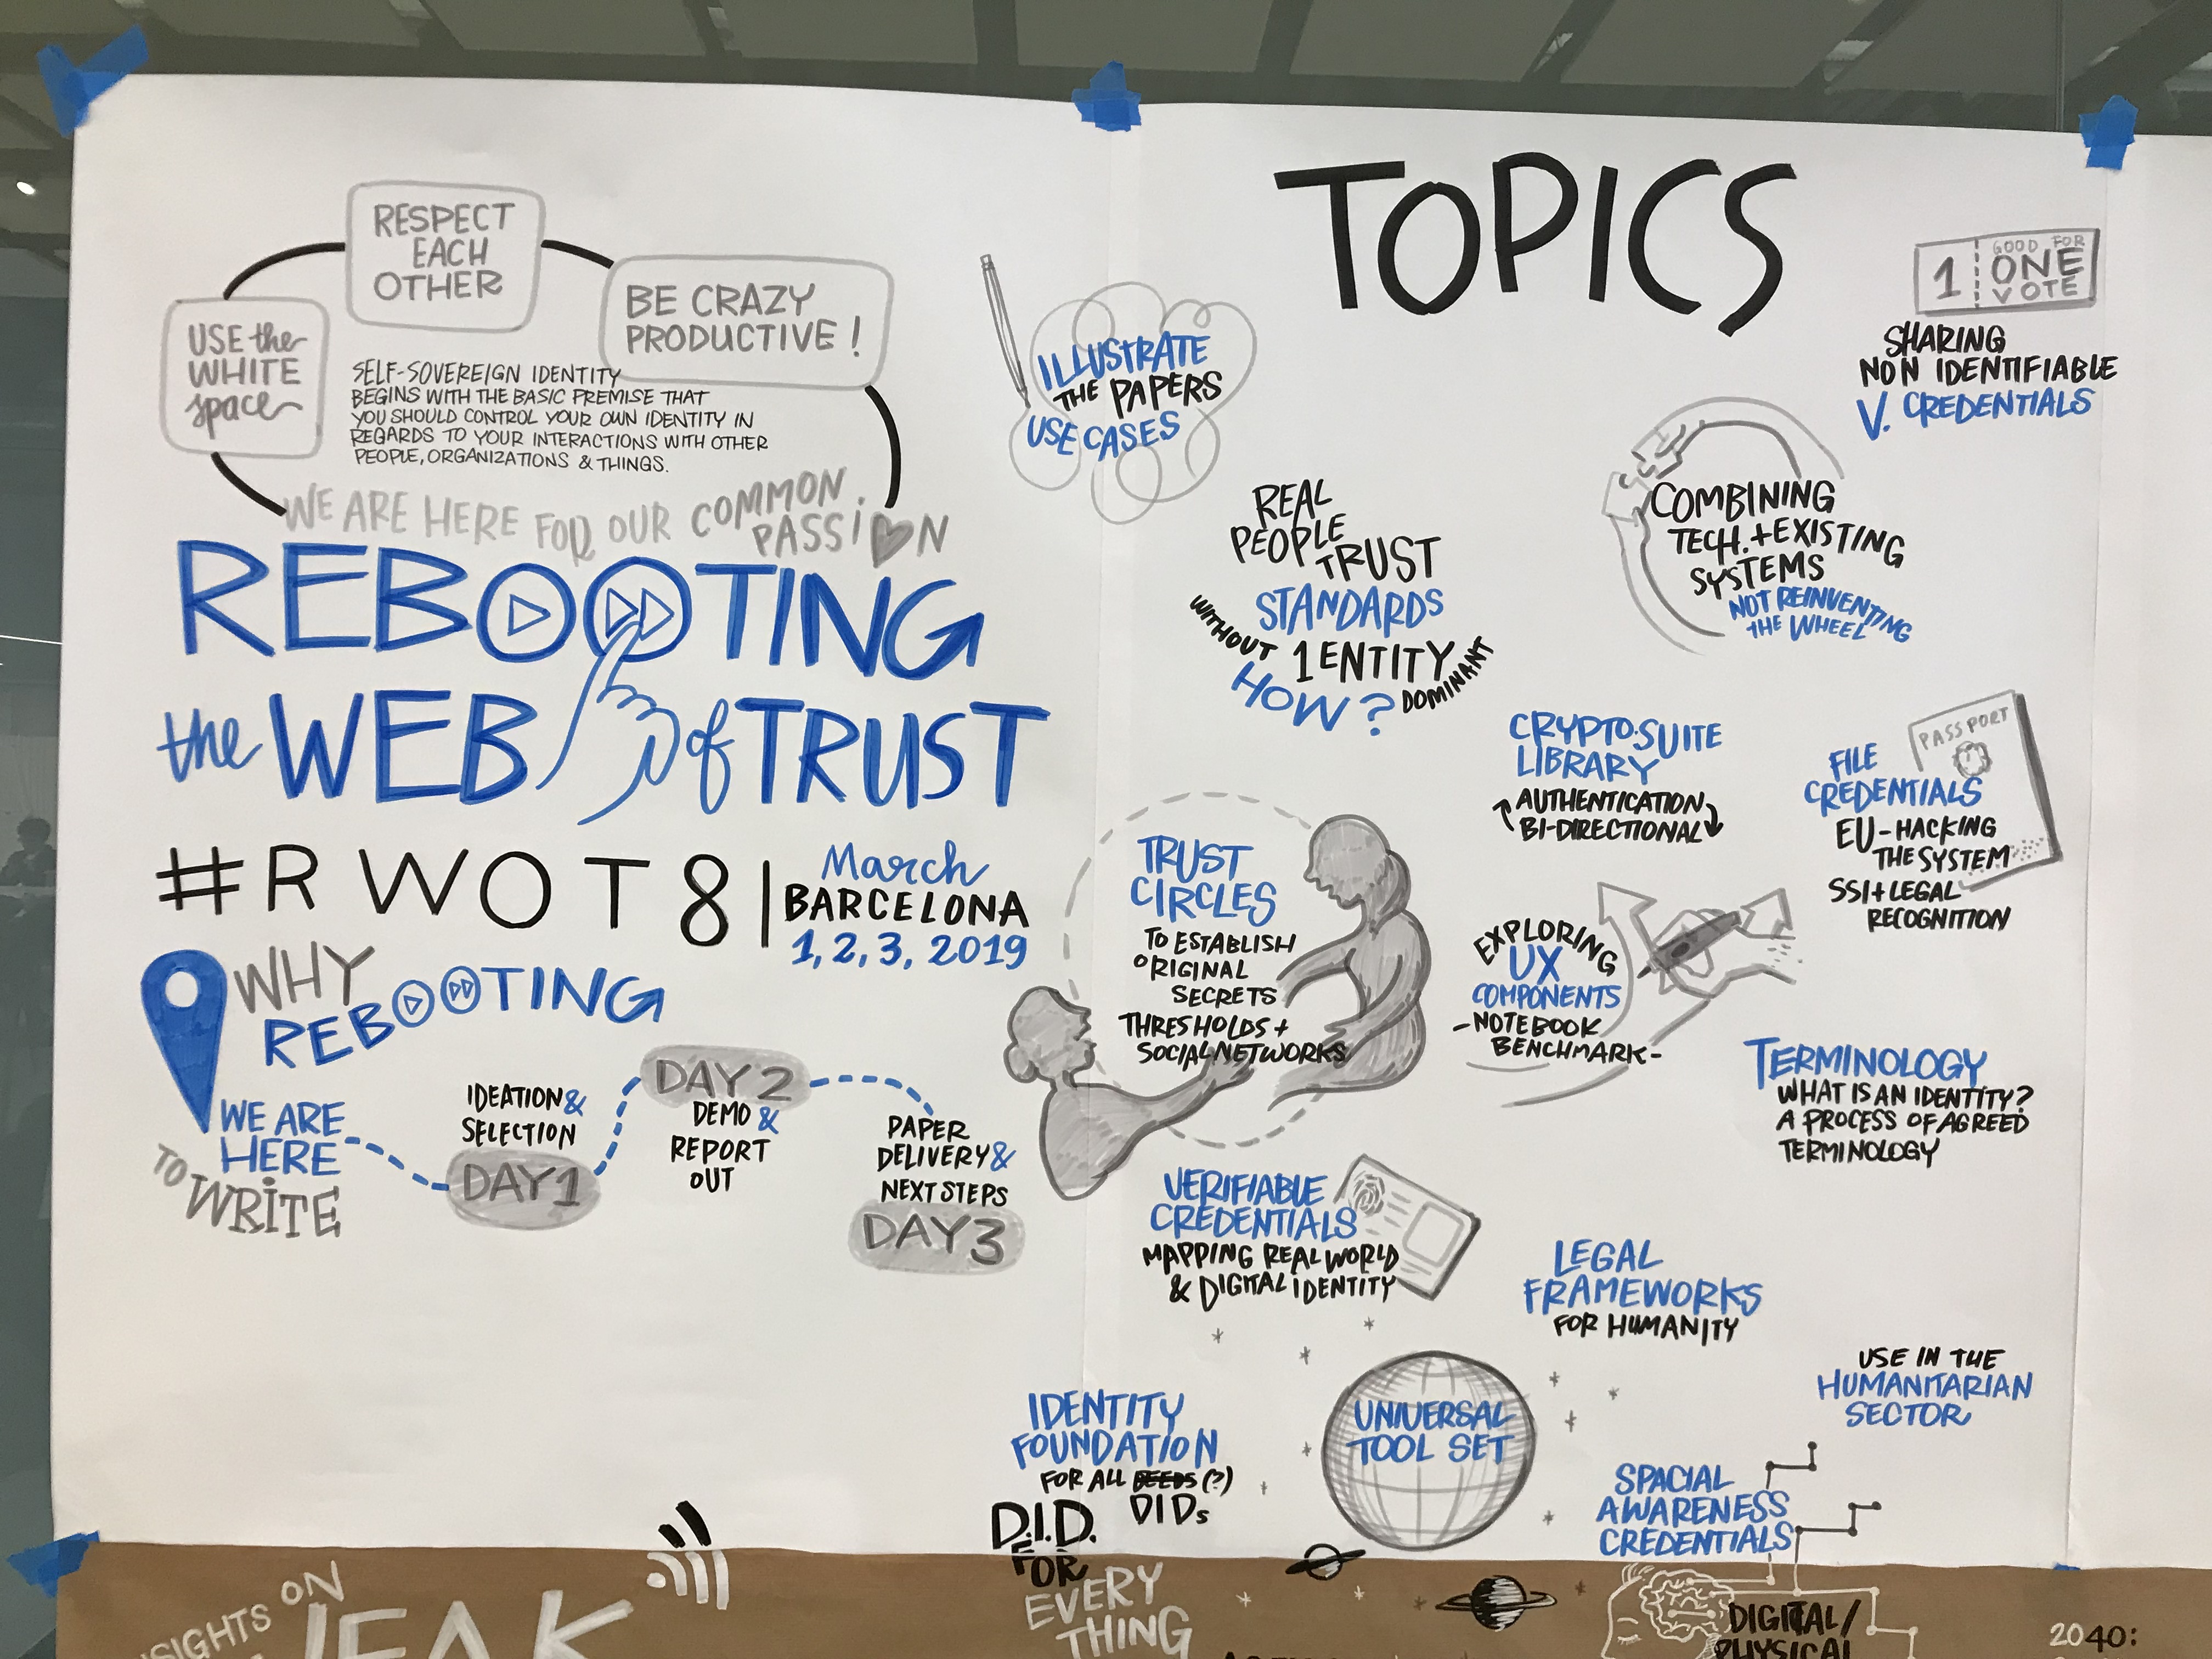 RESPECT
EACH
OTHER
USE the
WHITE
space
BE CRAZY
PRODUCTIVE!
SELF-SOVEREIGN IDENTITY
BEGINS WITH THE BASIC PREMISE THAT
YOU SHOULD CONTROL YOUR OWN IDENTITY IN
REGARDS TO YOUR INTERACTIONS WITH OTHER
PEOPLE, ORGANIZATIONS & THINGS.
WE ARE HERE FOR OUR COMMON
PASSION
REBOOTING
the WEB of TRUST
#RWOT8|
March
BARCELONA
1, 2, 3, 2019
WHY
REBOOTING
WE ARE
HERE
TO
WRITE
IDEATION &
SELECTION
DAY 1
DAY 2
DEMO &
REPORT
OUT
PAPER
DELIVERY &
NEXT STEPS
DAY 3
TOPICS
ILLUSTRATE
THE PAPERS
USE CASES
1 GOOD FOR
ONE
VOTE
SHARING
NON IDENTIFIABLE
V. CREDENTIALS
REAL
PEOPLE
TRUST
STANDARDS
WITHOUT
1 ENTITY
DOMINANT
HOW?
COMBINING
TECH. + EXISTING
SYSTEMS
NOT REINVENTING
THE WHEEL
CRYPTO-SUITE
LIBRARY
AUTHENTICATION
BI-DIRECTIONAL
PASSPORT
FILE
CREDENTIALS
EU-HACKING
THE SYSTEM
SSI + LEGAL
RECOGNITION
TRUST
CIRCLES
TO ESTABLISH
ORIGINAL
SECRETS
THRESHOLDS +
SOCIAL NETWORKS
EXPLORING
UX
COMPONENTS
-NOTEBOOK
BENCHMARK-
TERMINOLOGY
WHAT IS AN IDENTITY?
A PROCESS OF AGREED
TERMINOLOGY
VERIFIABLE
CREDENTIALS
MAPPING REAL WORLD
& DIGITAL IDENTITY
LEGAL
FRAMEWORKS
FOR HUMANITY
USE IN THE
HUMANITARIAN
SECTOR
IDENTITY
FOUNDATION
FOR ALL DEEDS (?)
DIDs
UNIVERSAL
TOOL SET
SPACIAL
AWARENESS
CREDENTIALS
D.I.D.
FOR
EVERY
THING
ON
DIGITAL/
PHYSICAL
2040: